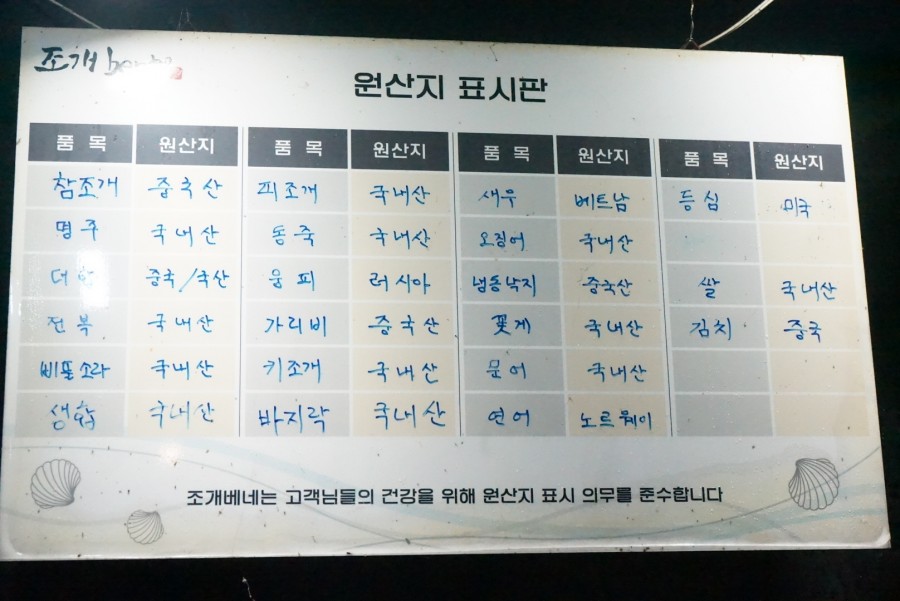 조개
원산지 표시판
품 목 원산지 품 목 원산지 품 목 원산지 품 목 원산지
참조개 중국산 피조개 국내산 새우 베트남 등심 미국
명주 국내산 동죽 국내산 오징어 국내산
중국/국산 웅피 러시아 냉동낙지 중국산 쌀 국내산
전복 국내산 가리비 중국산 꽃게 국내산 김치 중국
삐뚤소라 국내산 키조개 국내산 문어 국내산
생합 국내산 바지락 국내산 연어 노르웨이
조개베네는 고객님들의 건강을 위해 원산지 표시 의무를 준수합니다